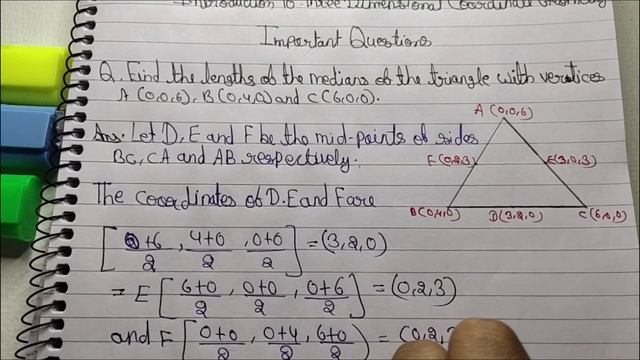 Introduction to Three Dimensional Coordinate Geometry
Important Questions
Q. Find the lengths of the medians of the triangle with vertices
A (0,0,6), B(0,4,0) and C(6,0,0).
A (0,0,6)
Ans. Let D, E and F be the mid-points of sides
BC, CA and AB respectively.
F(0,2,3)
E(3,0,3)
The coordinates of D.E and F are
B(0,4,0)
D(3,2,0)
C (6,0,0)
[0+6/2, 4+0/2, 0+0/2] = (3,2,0)
= E [6+0/2, 0+0/2, 0+6/2] = (0,2,3)
and F [0+0/2, 0+4/2, 6+0/2) = (0,2,